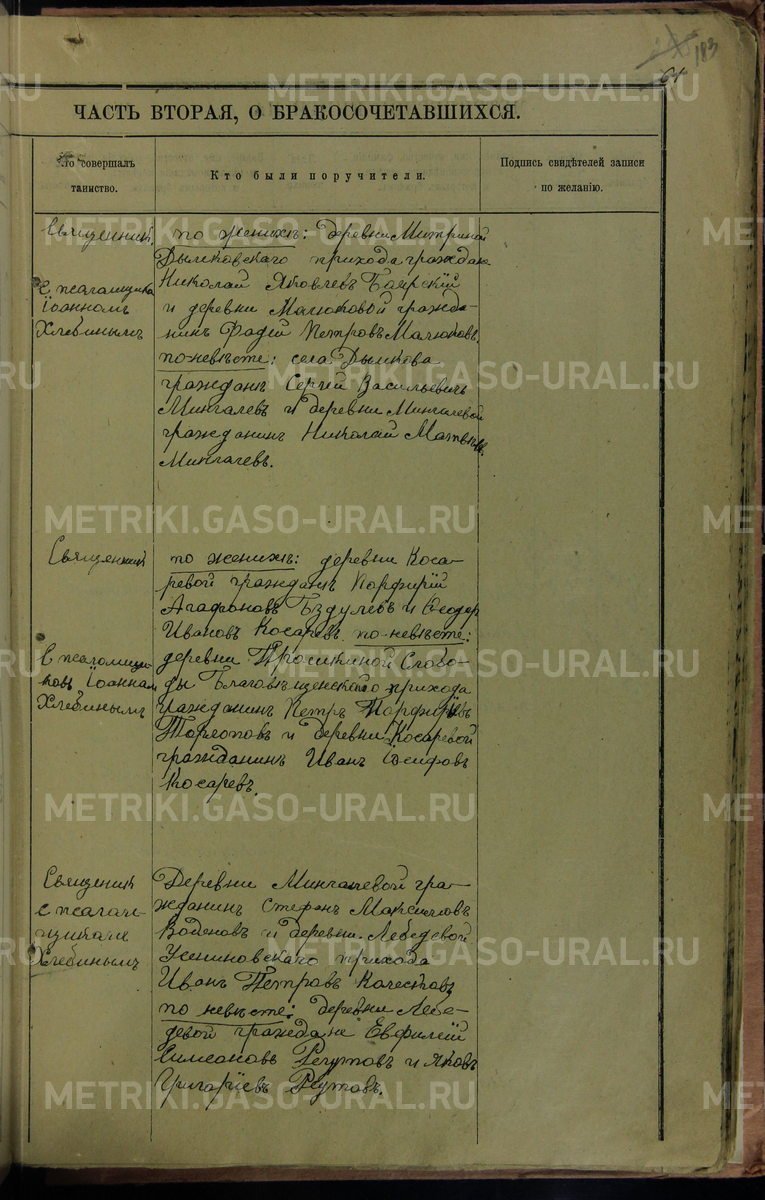 183
64
ЧАСТЬ ВТОРАЯ, О БРАКОСОЧЕТАВШИХСЯ.
Кто совершалъ
таинство.
Кто были поручители.
Подпись свидѣтелей записи
по желанію.
Священникъ
с псаломщикомъ
Іоанномъ
Хлебинымъ
по женихѣ: деревни Митриной
Дымковскаго прихода граждане
Николай Яковлевъ Боярскій
и деревни Малюковой гражда-
нинъ Фадей Петровъ Малюковъ.
по невѣсте: села Дымкова
гражданъ Сергій Васильевичъ
Мингалевъ и деревни Мингалевой
гражданинъ Николай Матвѣевъ
Мингалевъ.
Священникъ
с псаломщи-
комъ Іоанномъ
Хлебинымъ
по женихѣ: деревни Коса-
ревой гражданъ Порфирій
Агафоновъ Бздулевъ и Ѳеодоръ
Ивановъ Косаревъ. по невѣсте:
деревни Слобо-
ды Благовѣщенскаго прихода
гражданинъ Петръ Порфирьевъ
и деревни Косаревой
гражданинъ Иванъ Іосифовъ
Косаревъ.
Священникъ
с псалом-
щикомъ
Хлебинымъ
Деревни Мингалевой гра-
жданинъ Стефанъ Максимовъ
и деревни Лебедевой
Усениновскаго прихода
Иванъ Петровъ
по невѣсте: деревни Лебе-
девой граждане Евфимій
Симеоновъ Реутовъ и Яковъ
Григоріевъ Реутовъ.
METRIKI.GASO-URAL.RU